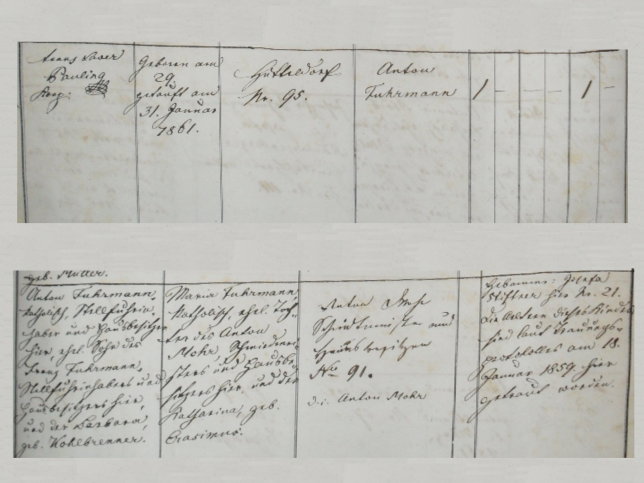 Franz Xaver
Pauling
Koop:
Geboren am
29.
getauft am
31. Januar
1861.
Hütteldorf
Nr. 95.
Anton
Fuhrmann
1 – – – 1 –
geb. Müller.
Anton Fuhrmann,
katholisch, Stellfuhrin-
haber und Hausbesitzer
hier, ehel. Sohn des
Franz Fuhrmann,
Stellfuhrinhabers und
Hausbesitzers hier,
und der Barbara,
geb. Kohlbrenner.
Maria Fuhrmann
katholisch, ehel. Toch-
ter des Anton
Mohr, Schmiedmei-
sters und Hausbe-
sitzers hier und der
Katharina, geb.
Erasimus.
Anton
Schmidmeister und
Hausbesitzer
No 91.
d. i. Anton Mohr
Hebamme: Josefa
Stiftner hier Nr. 21.
Die Aeltern dieses Kindes
sind laut Trauungs-
protokolles am 18.
Januar 1859 hier
getraut worden.